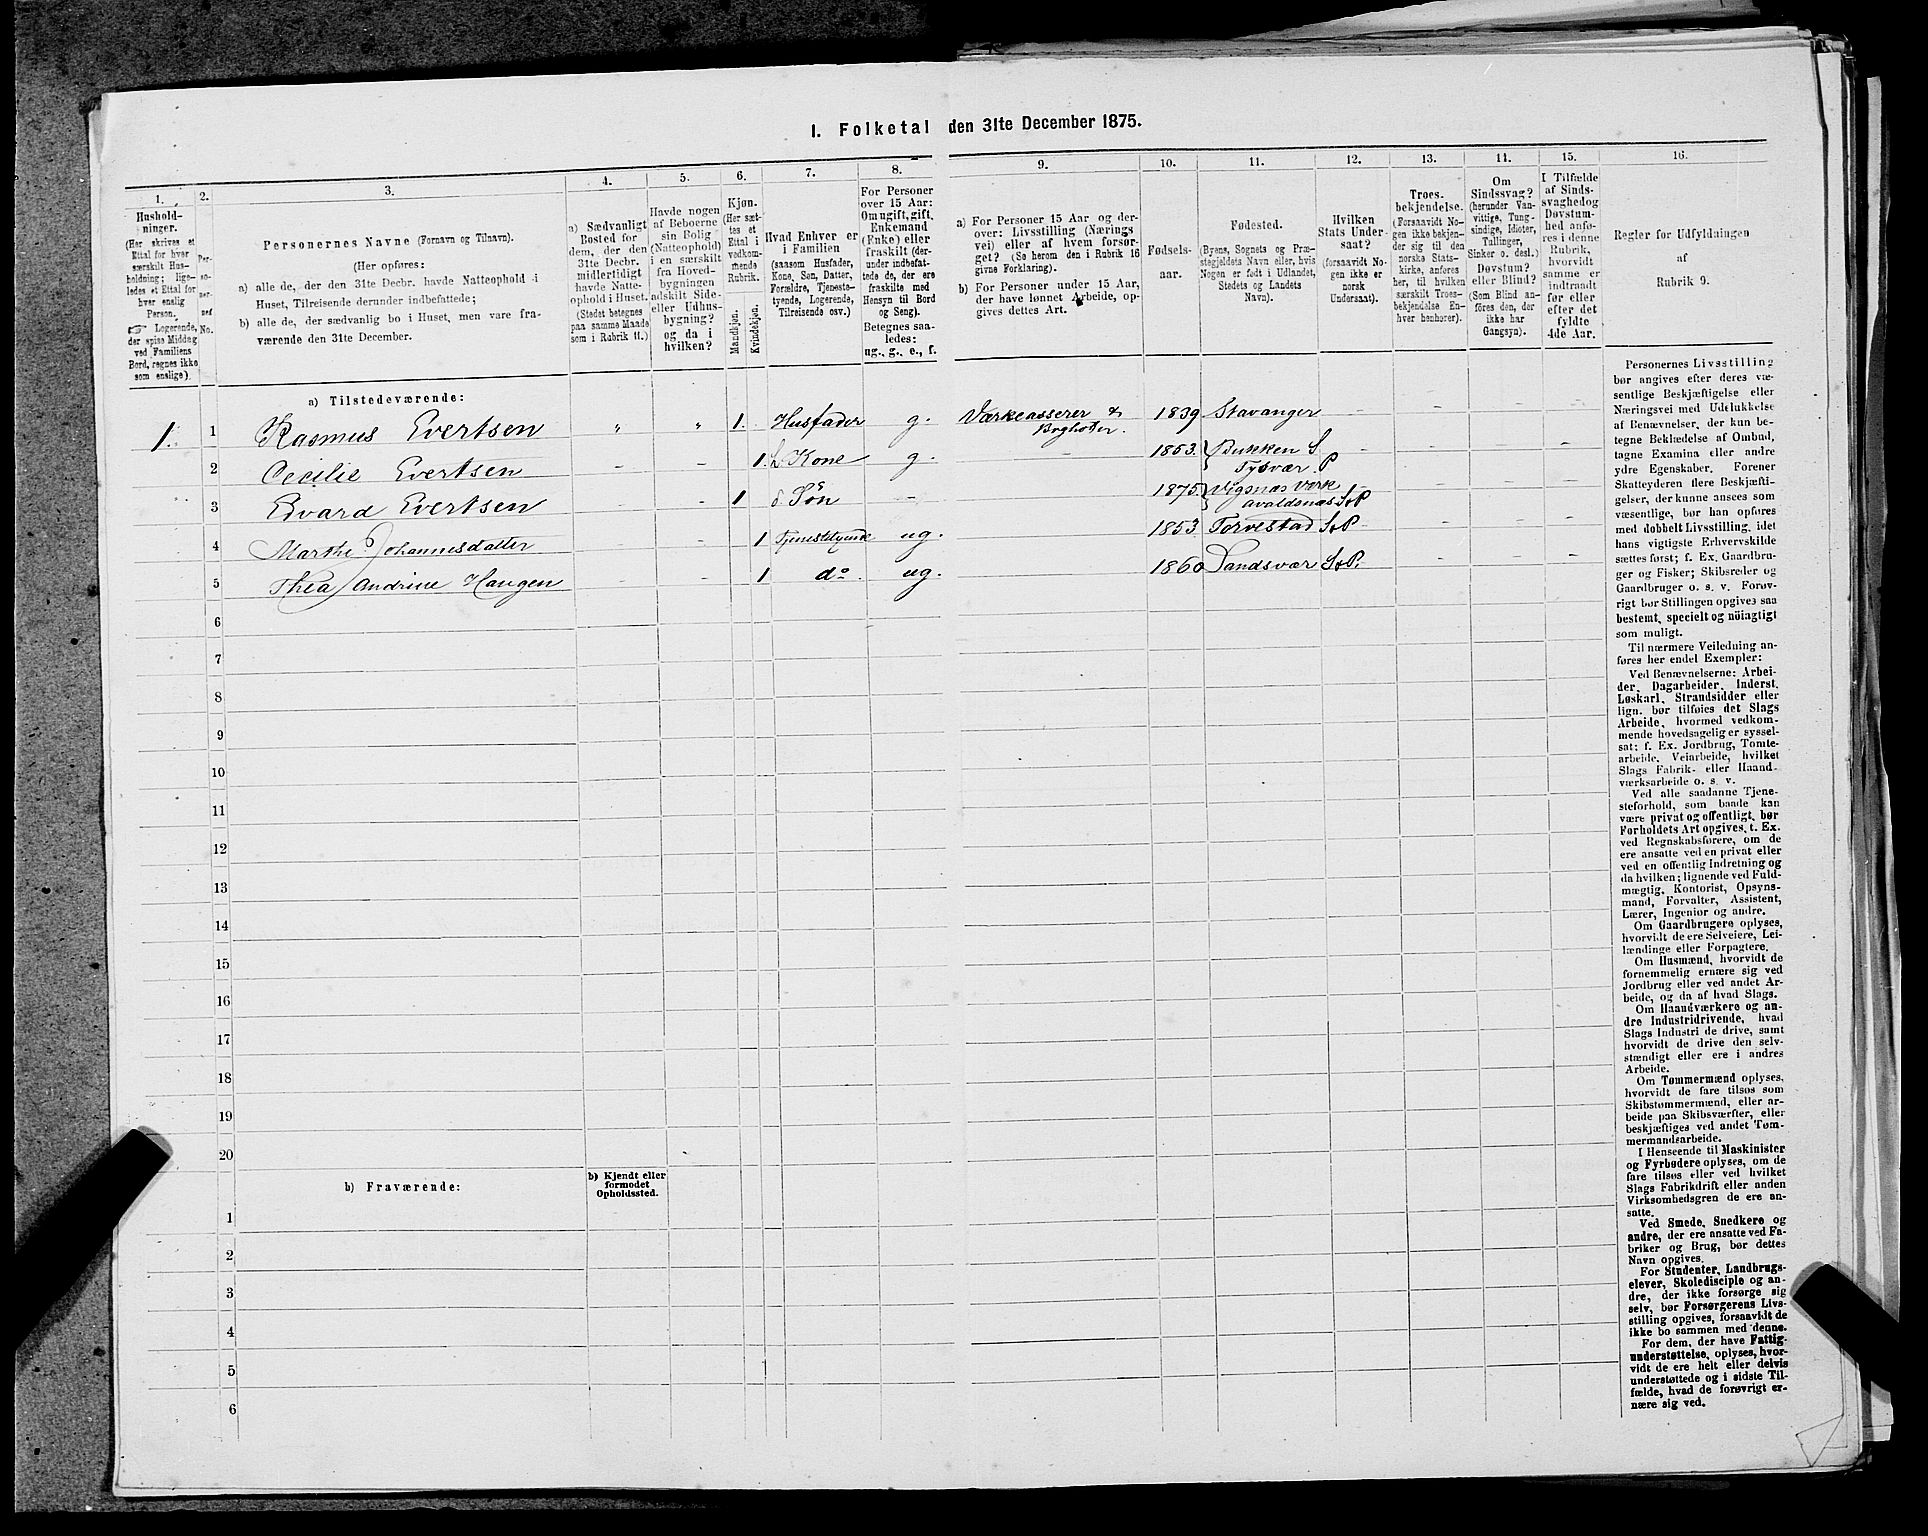 I. Folketal den 31te December 1875.
1.
2.
3.
4.
5.
6.
7.
8.
9.
10.
11.
12.
13.
14.
15.
16.
Hushold-
ninger.
(Her skrives et
Ettal for hver
særskilt Hus-
holdning; lige-
ledes et Ettal for
hver enslig
Person.
☞ Logerende,
der spise Middag
ved Familiens
Bord, regnes ikke
som enslige).
Per-
so-
ner-
nes
No.
Personernes Navne (Fornavn og Tilnavn).
(Her opføres:
a) alle de, der den 31te Decbr. havde Natteophold i
Huset, Tilreisende derunder indbefattede;
b) alle de, der sædvanlig bo i Huset, men vare fra-
værende den 31te December.
a) Sædvanligt
Bosted for
dem, der den
31te Decbr.
midlertidigt
havde Natte-
ophold i Huset.
(Stedet betegnes
paa samme Maade
som i Rubrik 11.)
Havde nogen
af Beboerne
sin Bolig
(Natteophold)
i en særskilt
fra Hoved-
bygningen
adskilt Side-
eller Udhus-
bygning?
og da i
hvilken?
Kjøn.
(Her sæt-
tes et
Ettal i
vedkom-
mende
Rubrik.
Mandkjøn.
Kvindekjøn.
Hvad Enhver er
i Familien
(saasom Husfader,
Kone, Søn, Datter,
Forældre, Tjeneste-
tyende, Logerende,
Tilreisende osv.)
For Personer
over 15 Aar:
Om ugift, gift,
Enkemand
(Enke) eller
fraskilt (der-
under indbefat-
tede de, der ere
fraskilte med
Hensyn til Bord
og Seng).
Betegnes saa-
ledes:
ug., g., e., f.
a) For Personer 15 Aar og der-
over: Livsstilling (Nærings
vei) eller af hvem forsør-
get? (Se herom den i Rubrik 16
givne Forklaring).
b) For Personer under 15 Aar,
der have lønnet Arbeide, op-
gives dettes Art.
Fødsels-
aar.
Fødested.
(Byens, Sognets og Præ-
stegjeldets Navn eller, hvis
Nogen er født i Udlandet,
Stedets og Landets
Navn).
Hvilken
Stats Under-
saat?
(forsaavidt No-
gen ikke er
norsk
Undersaat).
Troes-
bekjendelse.
(Forsaavidt No-
gen ikke bekjen-
der sig til den
norske Stats-
kirke, anføres
her, til hvilken
særskilt Troes-
bekjendelse En-
hver henhører).
Om
Sindssvag?
(herunder Van-
vittige, Tung-
sindige, Idioter,
Tullinger,
Sinker o. desl.)
Døvstum?
eller Blind?
(Som Blind an-
føres den, der
ikke har
Gangsyn).
I Tilfælde
af Sinds-
svaghed og
Døvstum-
hed anfø-
res i denne
Rubrik,
hvorvidt
samme er
indtraadt
før eller
efter det
fyldte
4de Aar.
Regler for Udfyldningen
af
Rubrik 9.
a) Tilstedeværende:
1. 1 Rasmus Evertsen " " 1. Husfader g. Værkcasserer & 1839 Stavanger
Boghoder.
2 Cecilie Evertsen 1. Kone g. 1853. Bukken S
Tysvær P
3 Edvard Evertsen 1 Søn 1875 Vigsnæs Verk
Avaldsnæs S&P
4 Marthe Johannesdatter 1 Tjenestetyende ug. 1853 Torvestad S&P
5 Thea Andrine Haugen 1 do ug. 1860 Sandsvær S&P.
6
7
8
9
10
11
12
13
14
15
16
17
18
19
20
b) Fraværende:
b) Kjendt eller
formodet
Opholdssted.
1
2
3
4
5
6
Personernes Livsstilling
bør angives efter deres væ-
sentlige Beskjæftigelse eller
Næringsvei med Udelukkelse
af Benævnelser, der kun be-
tegne Beklædelse af Ombud,
tagne Examina eller andre
ydre Egenskaber. Forener
Skatteyderen flere Beskjæfti-
gelser, der kunne ansees som
væsentlige, bør han opføres
med dobbelt Livsstilling, idet
hans vigtigste Erhvervskilde
sættes først; f. Ex. Gaardbru-
ger og Fisker; Skibsreder og
Gaardbruger o. s. v. Forøv-
rigt bør Stillingen opgives saa
bestemt, specielt og nöiagtigt
som muligt.
Til nærmere Veiledning an-
føres her endel Exempler:
Ved Benævnelserne: Arbei-
der, Dagarbeider, Inderst,
Løskarl, Strandsidder eller
lign. bør tilføies det Slags
Arbeide, hvormed vedkom-
mende hovedsagelig er syssel-
sat; f. Ex. Jordbrug, Tomte-
arbeide, Veiarbeide, hvilket
Slags Fabrik- eller Haand-
værksarbeide o. s. v.
Ved alle saadanne Tjene-
steforhold, som baade kan
være privat og offentligt, bør
Forholdets Art opgives, t. Ex.
ved Regnskabsførere, om de
ere ansatte ved en privat eller
ved en offentlig Indretning og
da hvilken; lignende ved Fuld-
mægtig, Kontorist, Opsyns-
mand, Forvalter, Assistent,
Lærer, Ingeniør og andre.
Om Gaardbrugere oplyses,
hvorvidt de ere Selveiere, Lei-
lændinge eller Forpagtere.
Om Husmænd, hvorvidt de
fornemmelig ernære sig ved
Jordbrug eller ved andet Ar-
beide, og da af hvad Slags.
Om Haandværkere og an-
dre Industridrivende, hvad
Slags Industri de drive, samt
hvorvidt de drive den selv-
stændigt eller ere i andres
Arbeide.
Om Tømmermænd oplyses,
hvorvidt de fare tilsøs som
Skibstømmermænd, eller ar-
beide paa Skibsværfter, eller
beskjæftiges ved andet Tøm-
mermandsarbeide.
I Henseende til Maskinister
og Fyrbødere oplyses, om de
fare tilsøs eller ved hvilket
Slags Fabrikdrift eller anden
Virksomhedsgren de ere an-
satte.
Ved Smede, Snedkere og
andre, der ere ansatte ved Fa-
briker og Brug, bør dettes
Navn opgives.
For Studenter, Landbrugs-
elever, Skoledisciple og an-
dre, der ikke forsørge sig
selv, bør Forsørgerens Livs-
stilling opgives, forsaavidt de
ikke bo sammen med denne.
For dem, der have Fattig-
understøttelse, oplyses, hvor-
vidt de ere helt eller delvis
understøttede og i sidste Til-
fælde, hvad de forøvrigt er-
nære sig ved.